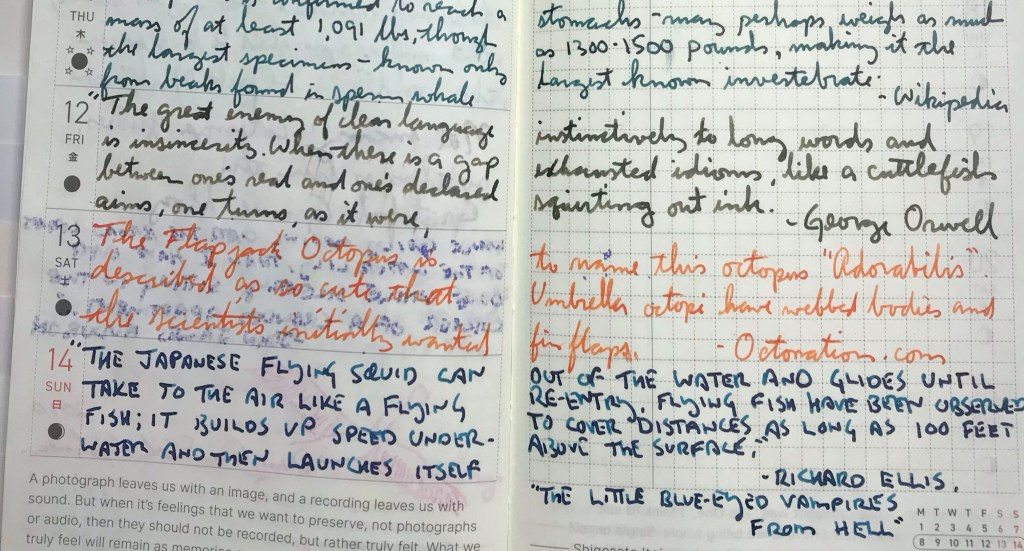 confirmed to reach a
THU
木
mass of at least 1,091 lbs, though
the largest specimens - known only
from beaks found in sperm whale
stomachs - may perhaps weigh as much
as 1300-1500 pounds, making it the
largest known invertebrate.
- Wikipedia
12
FRI
金
"The great enemy of clear language
is insincerity. When there is a gap
between one's real and one's declared
aims, one turns, as it were,
instinctively to long words and
exhausted idioms, like a cuttlefish
squirting out ink.
- George Orwell
13
SAT
土
The Flapjack Octopus is
described as so cute that
the scientists initially wanted
to name this octopus "Adorabilis".
Umbrella octopi have webbed bodies and
fin flaps. - Octonation.com
14
SUN
日
"THE JAPANESE FLYING SQUID CAN
TAKE TO THE AIR LIKE A FLYING
FISH; IT BUILDS UP SPEED UNDER-
WATER AND THEN LAUNCHES ITSELF
OUT OF THE WATER AND GLIDES UNTIL
RE-ENTRY. FLYING FISH HAVE BEEN OBSERVED
TO COVER DISTANCES AS LONG AS 100 FEET
ABOVE THE SURFACE."
- RICHARD ELLIS.
"THE LITTLE BLUE-EYED VAMPIRES
FROM HELL"
A photograph leaves us with an image, and a recording leaves us with
sound. But when it's feelings that we want to preserve, not photographs
or audio, then they should not be recorded, but rather truly felt. What we
truly feel will remain as memories
M T W T F S S
1 2 3 4 5 6 7
8 9 10 11 12 13 14